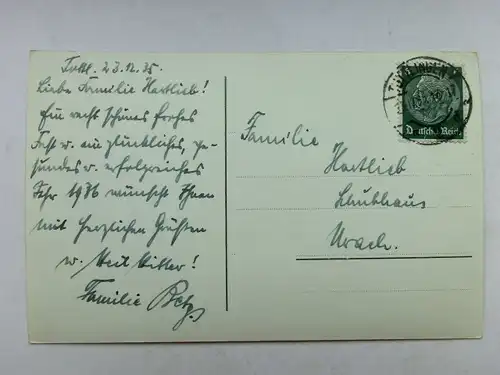 Tuttl. 23.12.35.
Liebe Familie Hartlieb!
Ein recht schönes frohes
Fest u. ein glückliches, ge-
sundes u. erfolgreiches
Jahr 1936 wünscht Ihnen
mit herzlichen Grüßen
u. Heil Hitler!
Familie Betz.
TUTTLINGEN
Deutsches Reich
Familie
Hartlieb
Urach.